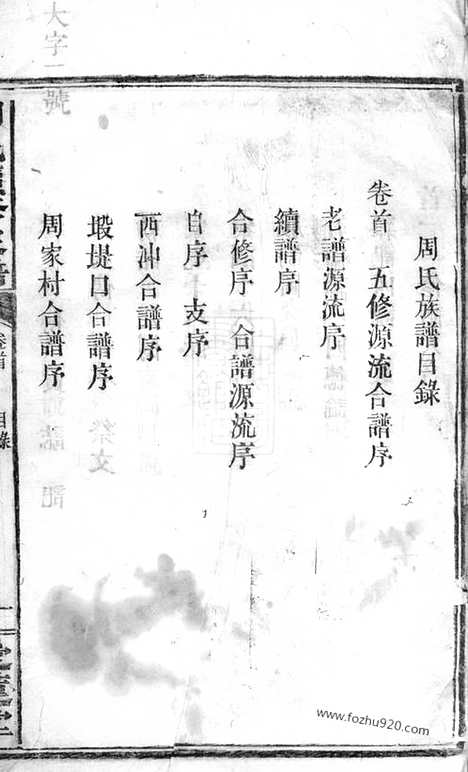 大字一號
周氏族譜目錄
卷首　五修源流合譜序
老譜源流序
續譜序
合修序　合譜源流序
自序　支序
西冲合譜序
塅堤口合譜序
周家村合譜序
卷首
目錄
www.fozhu920.com